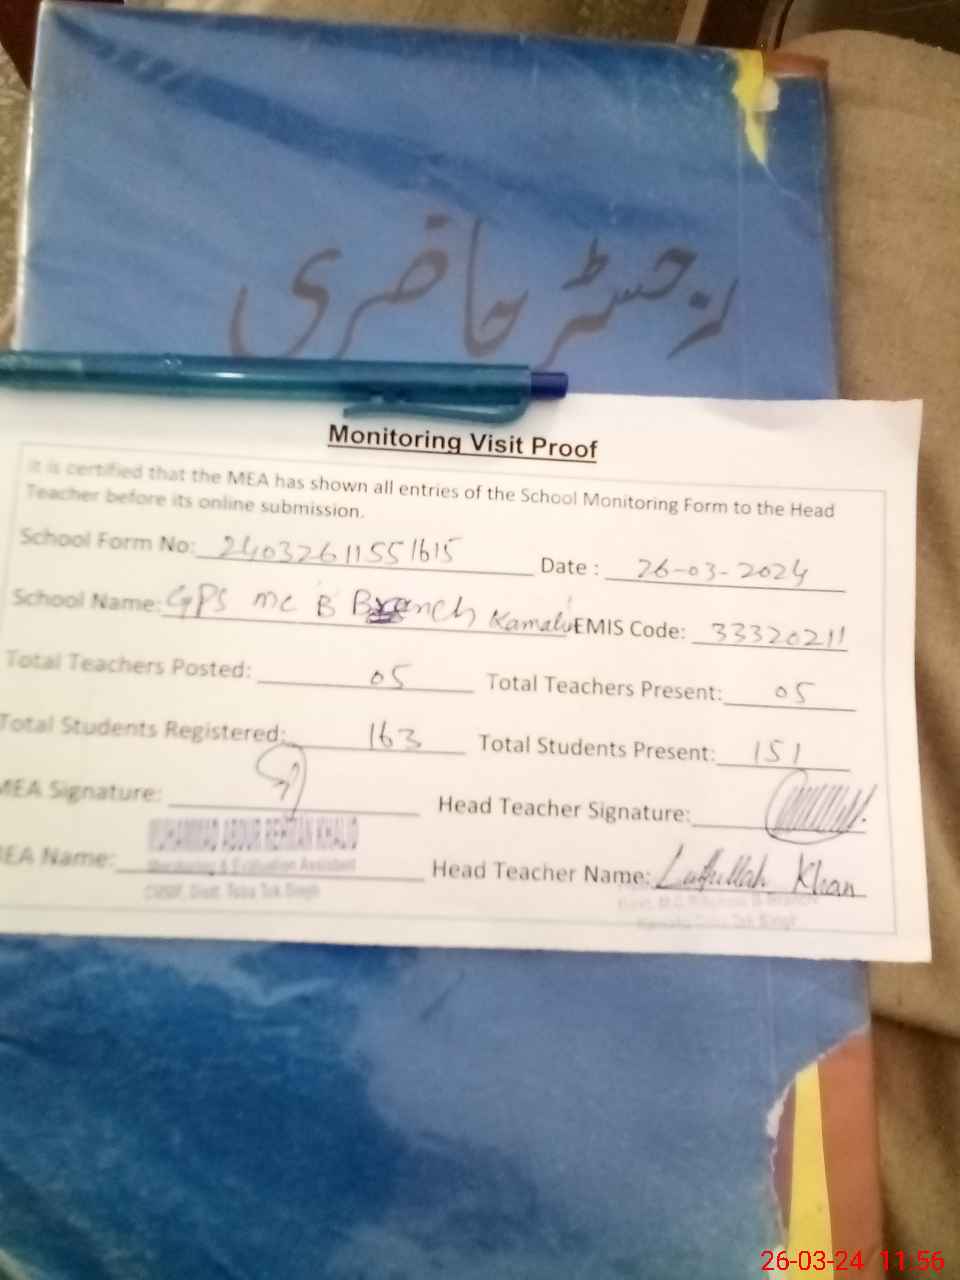 رجسٹر حاضری
Monitoring Visit Proof
It is certified that the MEA has shown all entries of the School Monitoring Form to the Head
Teacher before its online submission.
School Form No: 24032611551615 Date : 26-03-2024
School Name: GPS MC B Branch Kamalia EMIS Code: 33320211
Total Teachers Posted: 05 Total Teachers Present: 05
Total Students Registered: 163 Total Students Present: 151
MEA Signature: Head Teacher Signature:
MUHAMMAD ABDUR REHMAN KHALID
MEA Name: Monitoring & Evaluation Assistant Head Teacher Name: Lutfullah Khan
Distt. Toba Tek Singh
Toba Tek Singh
26-03-24 11:56